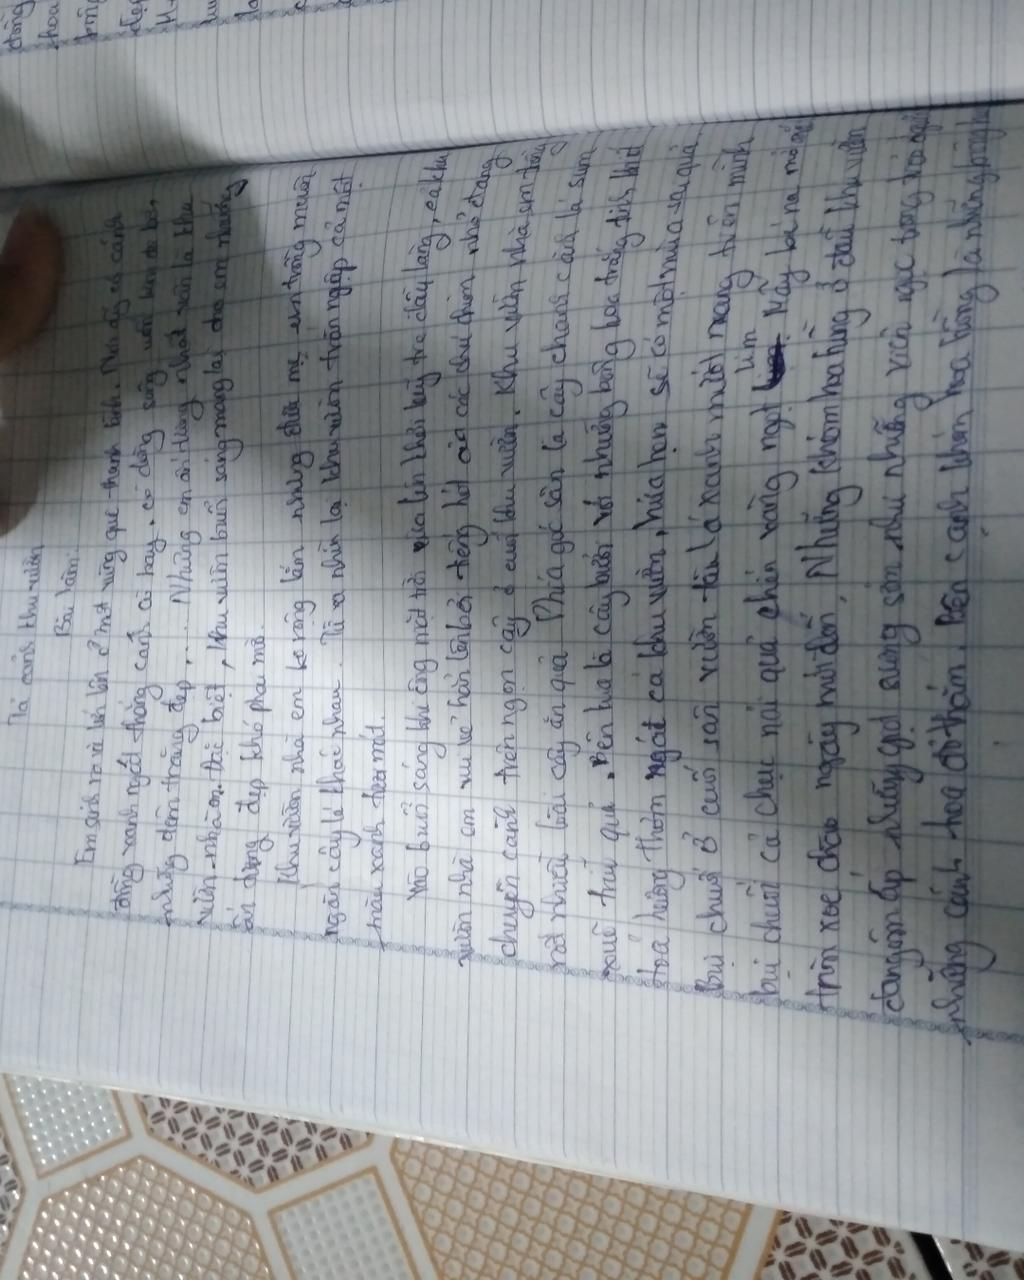 Tả cảnh khu vườn
Bài làm:
Em sinh ra và lớn lên ở một vùng quê thanh bình. Nơi đây có cánh
đồng xanh ngát thẳng cánh cò bay, có dòng sông uốn
những đêm trăng đẹp,.... Nhưng em ấn tượng nhất vẫn là khu
vườn nhà em. Đặc biệt, khu vườn buổi sáng mang lại cho em những
ấn tượng đẹp khó phai mờ.
Khu vườn nhà em ko rộng lắm nhưng được mẹ em trồng muôn
ngàn cây lá khác nhau. Từ xa nhìn lại khu vườn tràn ngập cả một
màu xanh tươi mát.
Vào buổi sáng khi ông mặt trời vừa lên khỏi luỹ tre đầu làng, cả khu
vườn nhà em vui vẻ hẳn lên bởi tiếng hót của các chú chim nhỏ đang
chuyền cành trên ngọn cây ở cuối khu vườn. Khu vườn nhà em trồng
rất nhiều loài cây ăn quả. Phía góc sân là cây chanh cành lá sum
xuê trĩu quả. Bên kia là cây bưởi với những bông hoa trắng tinh khiết
toả hương thơm ngát cả khu vườn, hứa hẹn sẽ có một mùa sai quả.
Bụi chuối ở cuối sân vườn tàu lá xanh mướt mang trên mình
bụi chuối cả chục nải quả chín vàng ngọt lịm. Mấy bé na nó
tròn xoe chào ngày mới đến. Những khóm hoa hồng ở đầu khu vườn
đang ôm ấp những giọt sương sớm như những viên ngọc trong
những cánh hoa đỏ thắm. Bên cạnh khóm hoa hồng là những